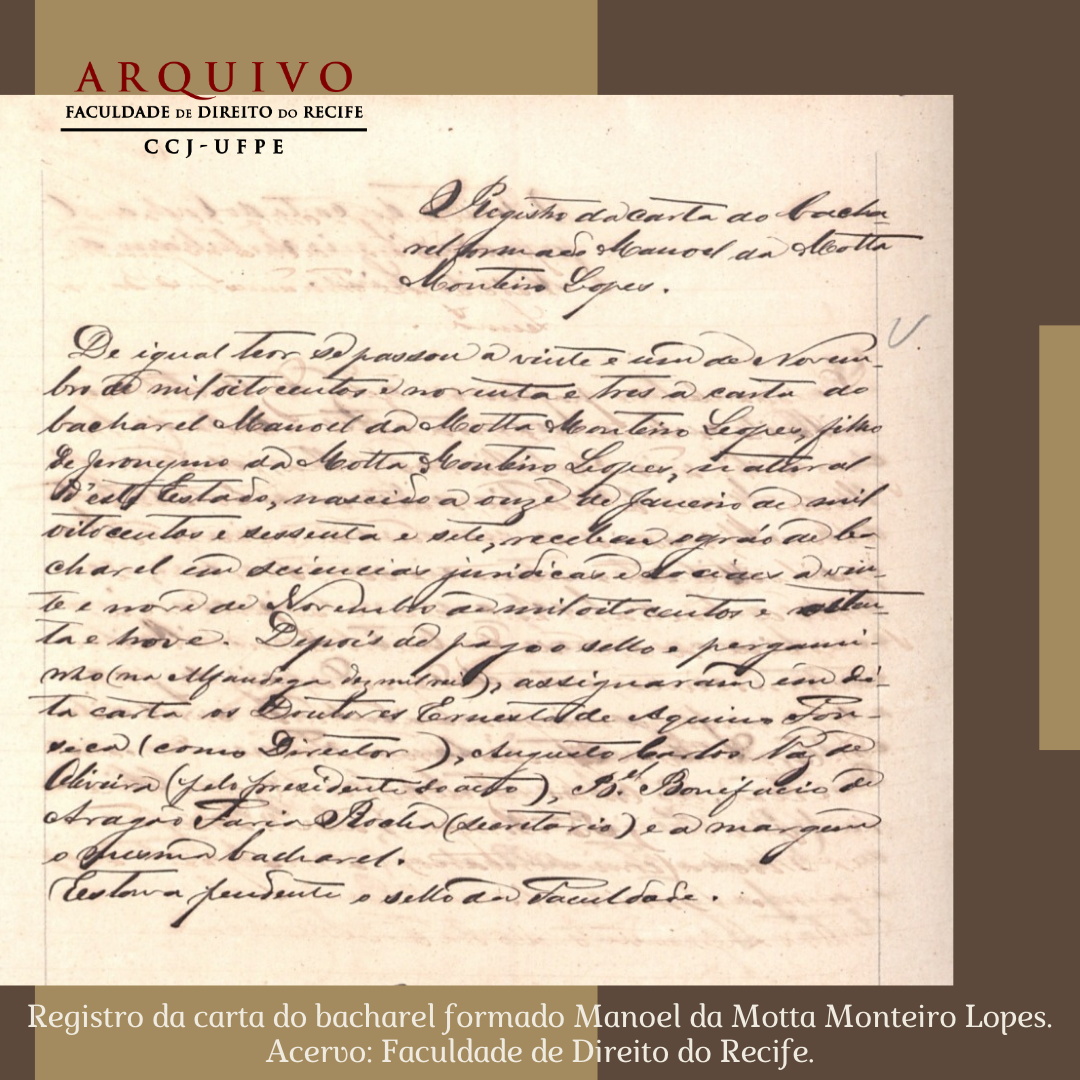 ARQUIVO
FACULDADE DE DIREITO DO RECIFE
CCJ-UFPE
Registro da carta do bacha-
rel formado Manoel da Motta
Monteiro Lopes.
De igual teor se passou a vinte e um de Novem-
bro de mil oitocentos e noventa e tres a carta do
bacharel Manoel da Motta Monteiro Lopes, filho
de Jeronymo da Motta Monteiro Lopes, natural
d'este Estado, nascido a onze de Janeiro de mil
oitocentos e sessenta e sete, recebeu o gráo de ba-
charel em sciencias juridicas e sociaes a vin-
te e nove de Novembro de mil oitocentos e oiten-
ta e nove. Depois de pago o sello e pergami-
nho (na Alfandega dez mil reis), assignaram em di-
ta carta os Doutores Ernesto de Aquino Fon-
seca (como Director), Augusto Carlos Vaz de
Oliveira (pelo presidente do acto), B.el Bonifacio de
Aragão Faria Rocha (secretario) e a margem
o mesmo bacharel.
Estava pendente o sello da Faculdade.
Registro da carta do bacharel formado Manoel da Motta Monteiro Lopes.
Acervo: Faculdade de Direito do Recife.